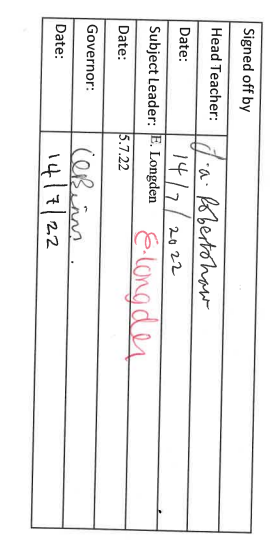 Signed off by
Head Teacher: J.a. Robertshaw
Date: 14/7/2022
Subject Leader: E. Longden E.longden
Date: 5.7.22
Governor:
Date: 14/7/22